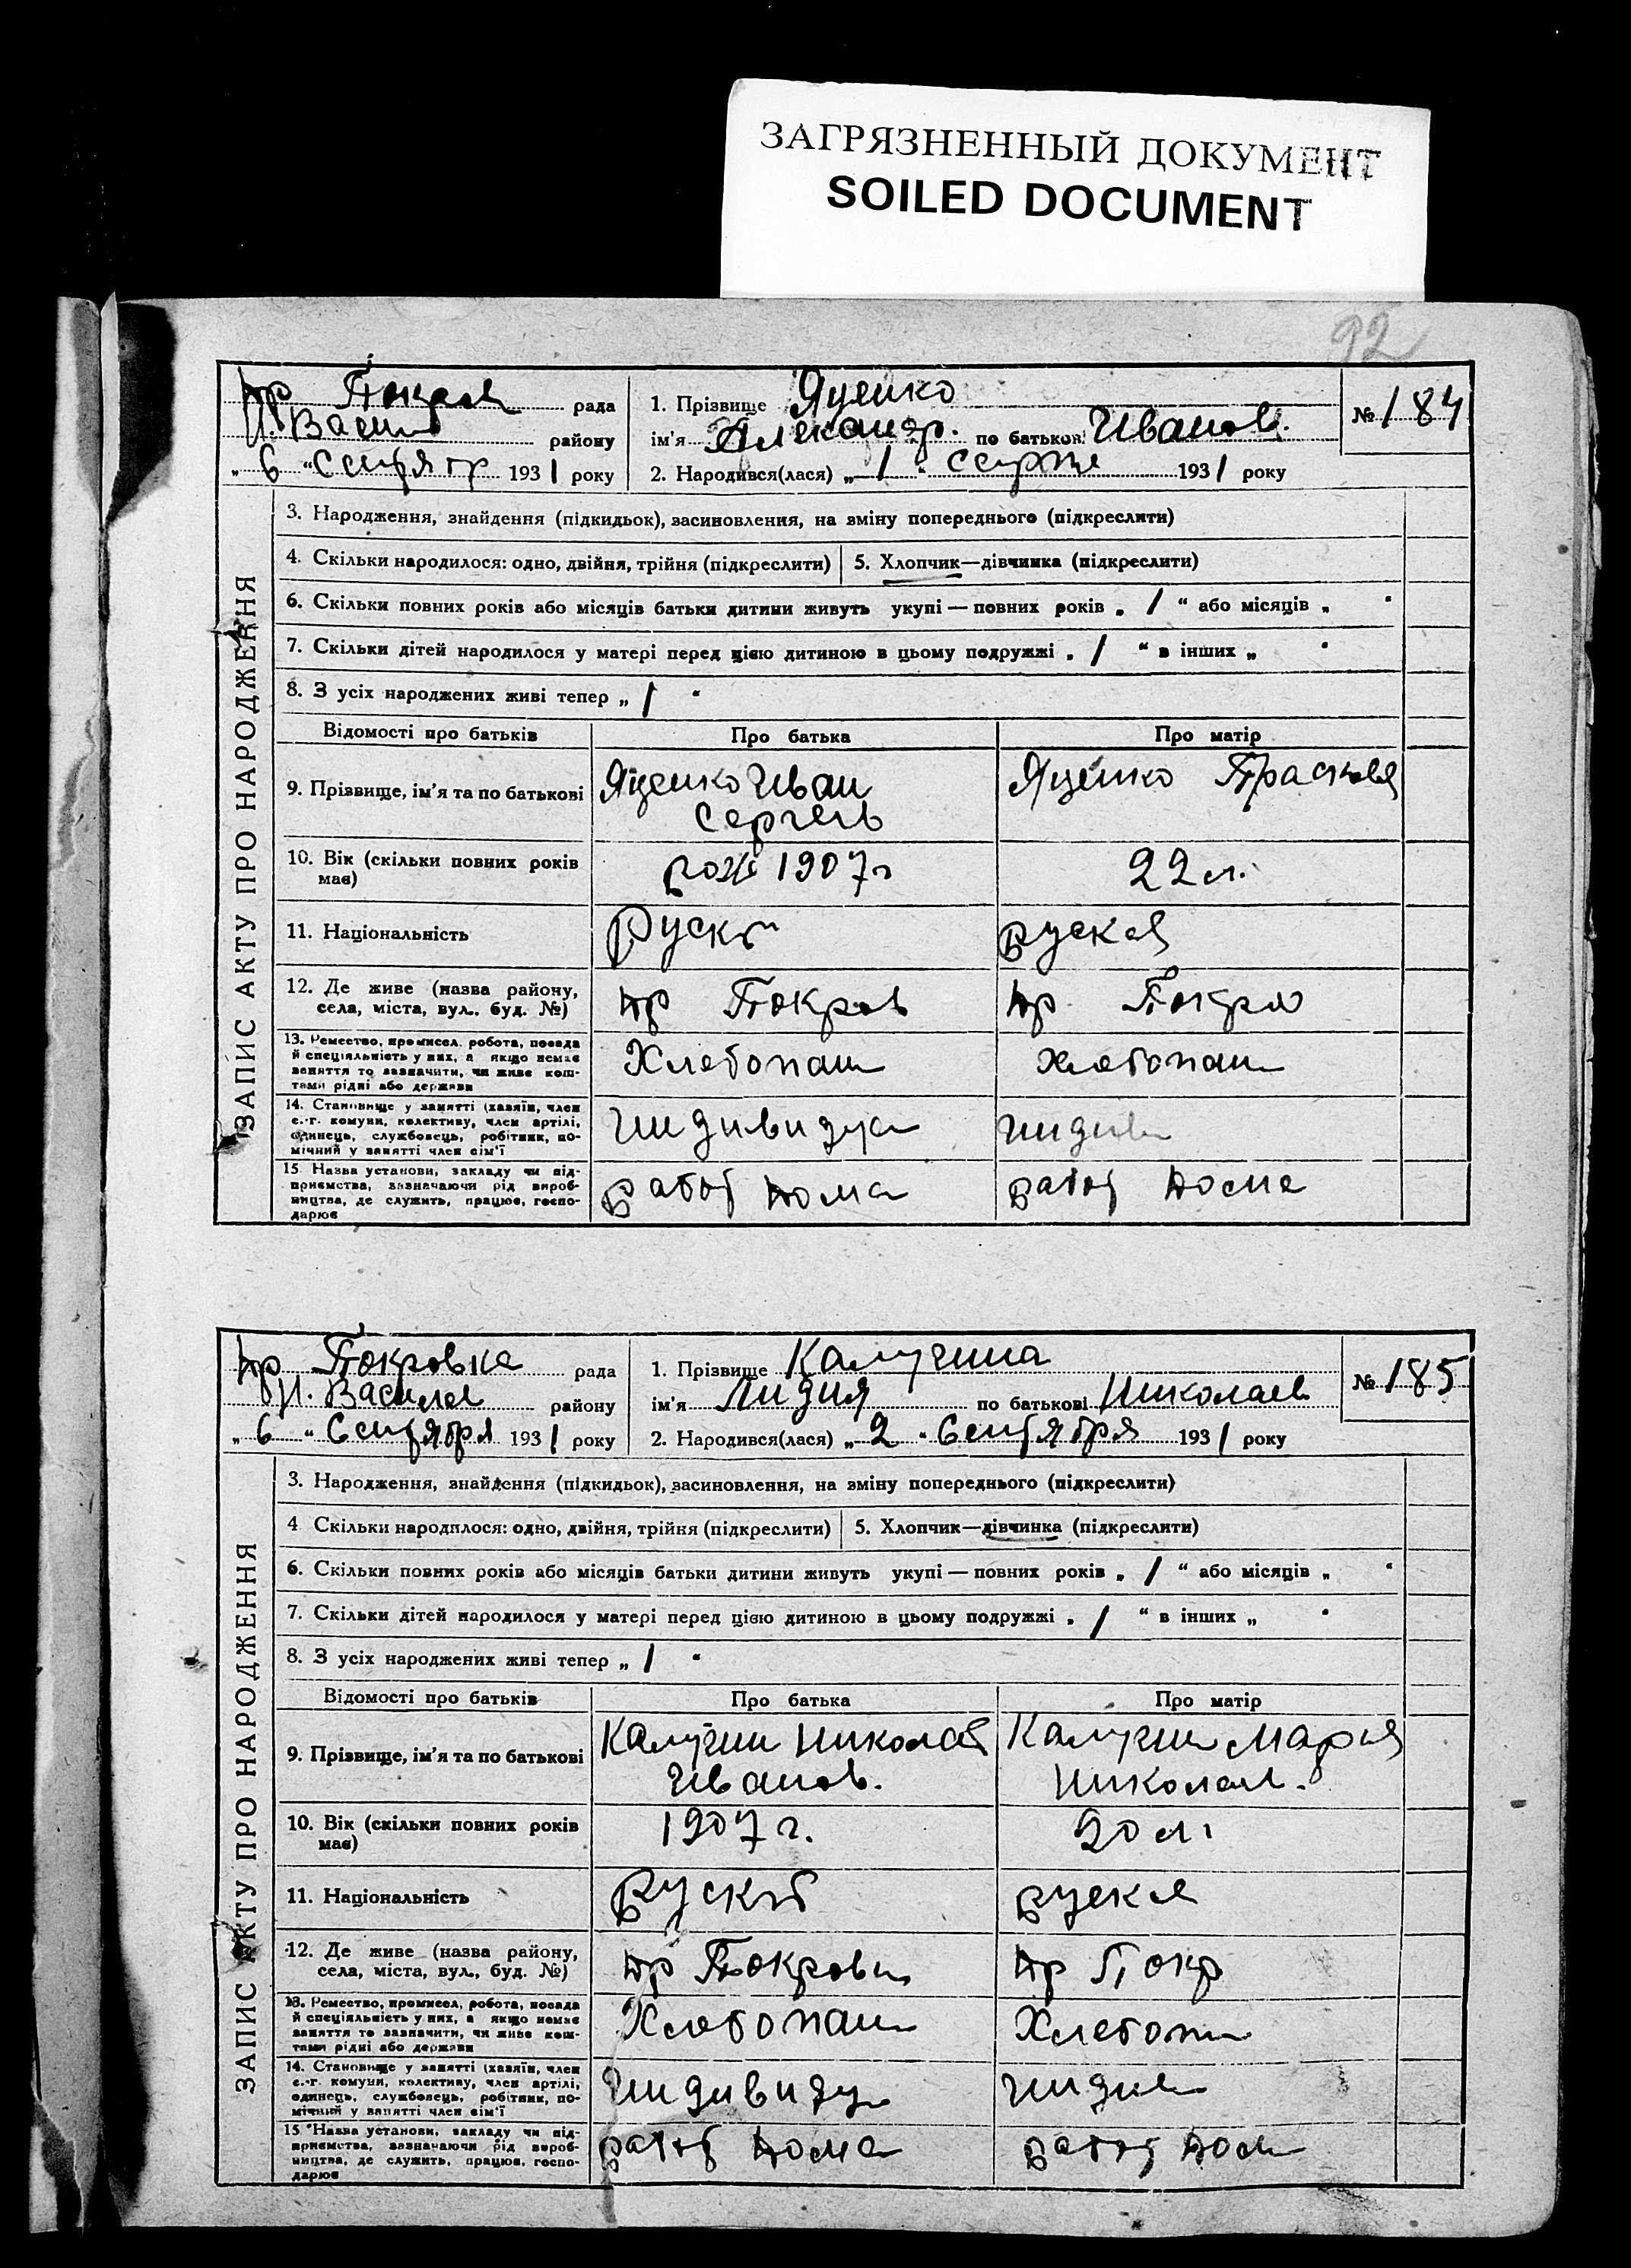 ЗАГРЯЗНЕННЫЙ ДОКУМЕНТ
SOILED DOCUMENT
92
рада
району
„ 6 “ 1931 року
1. Прізвище Яценко
ім'я Александр. по батькові Иванов.
2. Народився(лася) „ 1 “ 1931 року
№ 184
ЗАПИС АКТУ ПРО НАРОДЖЕННЯ
3. Народження, знайдення (підкидьок), засиновлення, на зміну попереднього (підкреслити)
4. Скільки народилося: одно, двійня, трійня (підкреслити) 5. Хлопчик—дівчинка (підкреслити)
6. Скільки повних років або місяців батьки дитини живуть укупі — повних років „ 1 “ або місяців „ “
7. Скільки дітей народилося у матері перед цією дитиною в цьому подружжі „ 1 “ в інших „ “
8. З усіх народжених живі тепер „ 1 “
Відомості про батьків Про батька Про матір
9. Прізвище, ім'я та по батькові Яценко Иван Яценко Прасковя
Сергеев
10. Вік (скільки повних років рож 1907 г 22 л.
має)
11. Національність Руски руская
12. Де живе (назва району, др Покров др. Покров
села, міста, вул., буд. №)
13. Ремество, промисел, робота, посада Хлебопаш Хлебопаш
й спеціяльність у них, а якщо немає
заняття то зазначити, чи живе кош-
тами рідні або держави
14. Становище у занятті (хазяїн, член Индивидуал Индив
с.-г. комуни, колективу, член артілі,
одинець, службовець, робітник, по-
мічний у занятті член сім'ї
15. Назва установи, закладу чи під- работ дома работ дома
приємства, зазначаючи рід вироб-
ництва, де служить, працює, госпо-
дарює
др Покровка рада
району
„ 6 “ Сентября 1931 року
1. Прізвище Калугина
ім'я Лидия по батькові Николаев
2. Народився(лася) „ 2 “ Сентября 1931 року
№ 185
ЗАПИС АКТУ ПРО НАРОДЖЕННЯ
3. Народження, знайдення (підкидьок), засиновлення, на зміну попереднього (підкреслити)
4 Скільки народилося: одно, двійня, трійня (підкреслити) 5. Хлопчик—дівчинка (підкреслити)
6. Скільки повних років або місяців батьки дитини живуть укупі — повних років „ 1 “ або місяців „ “
7. Скільки дітей народилося у матері перед цією дитиною в цьому подружжі „ 1 “ в інших „ “
8. З усіх народжених живі тепер „ 1 “
Відомості про батьків Про батька Про матір
9. Прізвище, ім'я та по батькові Калугин Николай Калугин Мария
Иванов. Николаев.
10. Вік (скільки повних років 1907 г. 20 л.
має)
11. Національність Руский руская
12. Де живе (назва району, др Покровк др Покр
села, міста, вул., буд. №)
13. Ремество, промисел, робота, посада Хлебопаш Хлебопаш
й спеціяльність у них, а якщо немає
заняття то зазначити, чи живе кош-
тами рідні або держави
14. Становище у занятті (хазяїн, член Индивиду Индив
с.-г. комуни, колективу, член артілі,
одинець, службовець, робітник, по-
мічний у занятті член сім'ї
15 Назва установи, закладу чи під- работ дома работ дома
приємства, зазначаючи рід вироб-
ництва, де служить, працює, госпо-
дарює